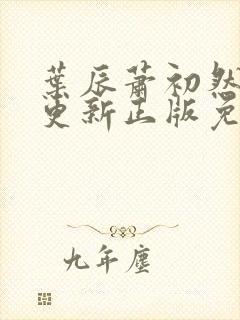 葉辰蕭初然
更新正版免
九年塵